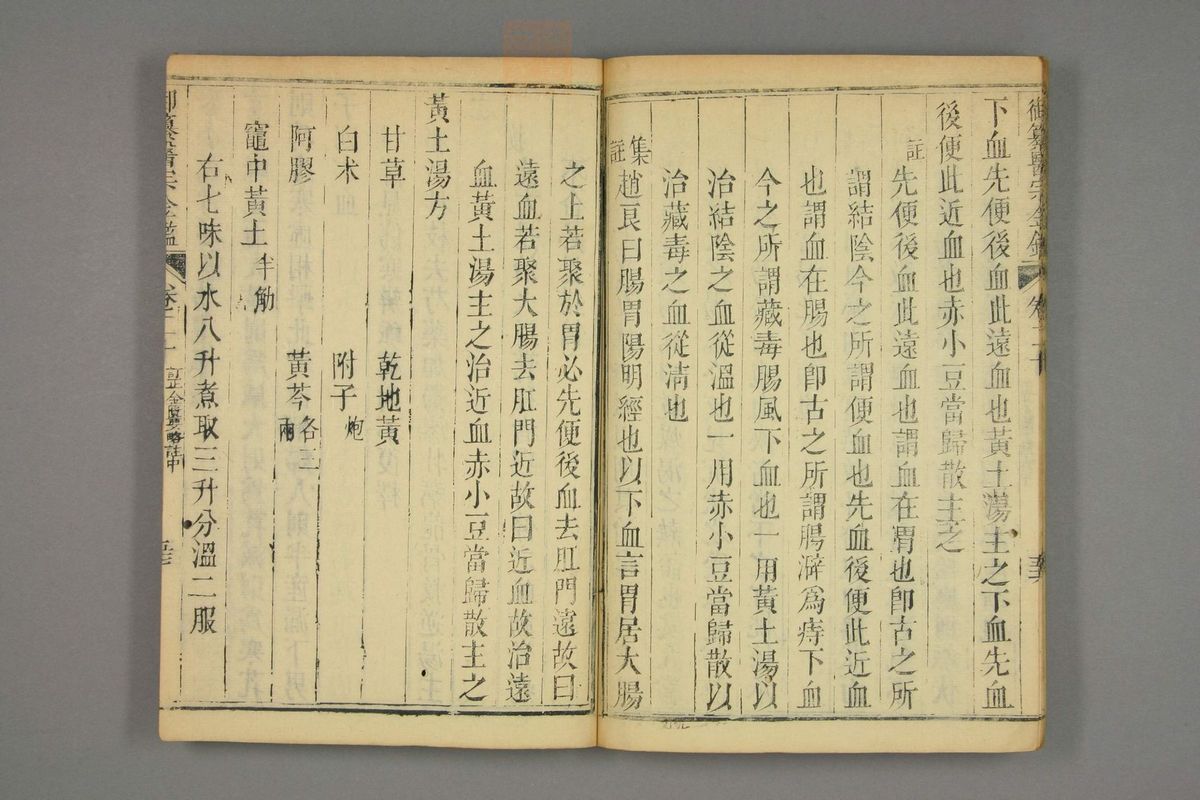 御纂醫宗金鑑 卷二十
下血先便後血此遠血也黃土湯主之下血先血
後便此近血也赤小豆當歸散主之
註 先便後血此遠血也謂血在胃也卽古之所
謂結陰今之所謂便血也先血後便此近血
也謂血在腸也卽古之所謂腸澼爲痔下血
今之所謂藏毒腸風下血也一用黃土湯以
治結陰之血從溫也一用赤小豆當歸散以
治藏毒之血從淸也
集註 趙良曰腸胃陽明經也以下血言胃居大腸
之上若聚於胃必先便後血去肛門遠故曰
遠血若聚大腸去肛門近故曰近血故治遠
血黃土湯主之治近血赤小豆當歸散主之
黃土湯方
甘草 乾地黃
白术 附子炮
阿膠 黃芩各三兩
竈中黃土半觔
右七味以水八升煮取三升分溫二服
御纂醫宗金鑑 卷二十 訂正金匱要略註中